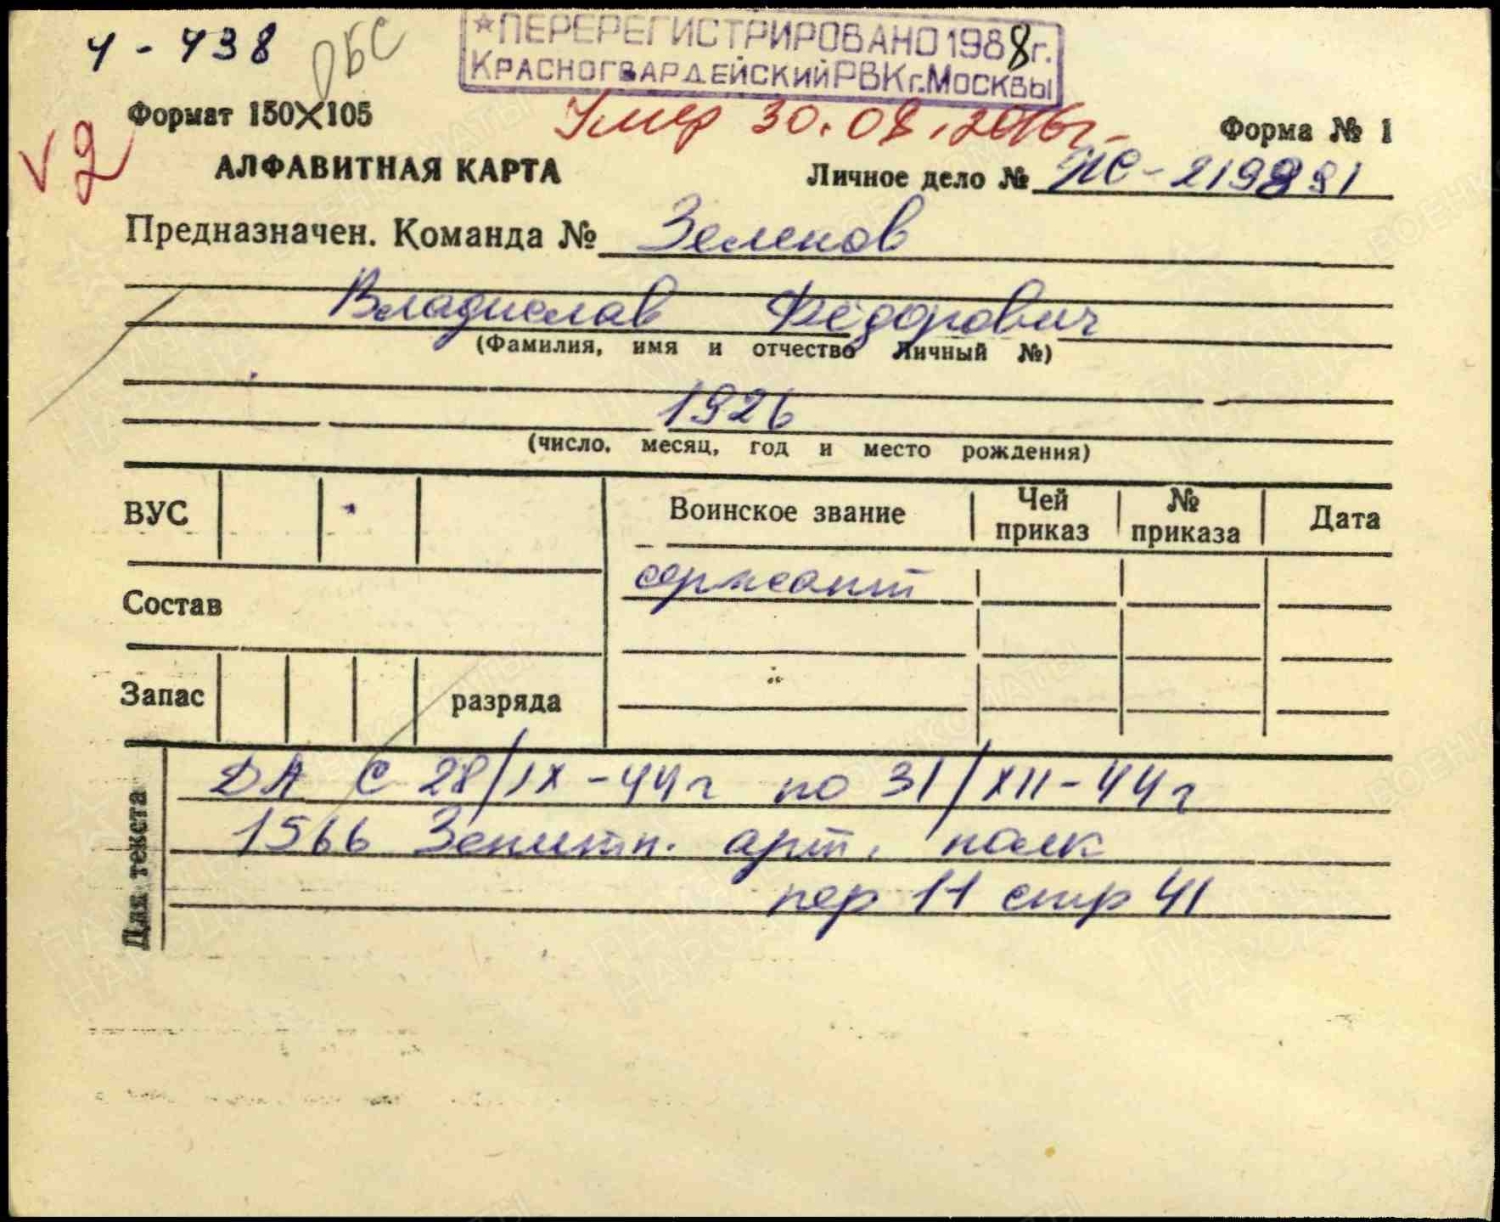 Ч - 438 ОБС
★ ПЕРЕРЕГИСТРИРОВАНО 1988г.
КРАСНОГВАРДЕЙСКИЙ РВК г. МОСКВЫ
Формат 150X105
Умер 30.08.2016г.
Форма № 1
V 2
АЛФАВИТНАЯ КАРТА
Личное дело № НС-219891
Предназначен. Команда № Зеленов
Владислав Фёдорович
(Фамилия, имя и отчество Личный №)
1926
(число, месяц, год и место рождения)
ВУС
Воинское звание Чей приказ № приказа Дата
сержант
Состав
Запас разряда
Для текста
ДА с 28/IX-44г по 31/XII-44г
1566 Зенитн. арт. полк
пер 11 стр 41